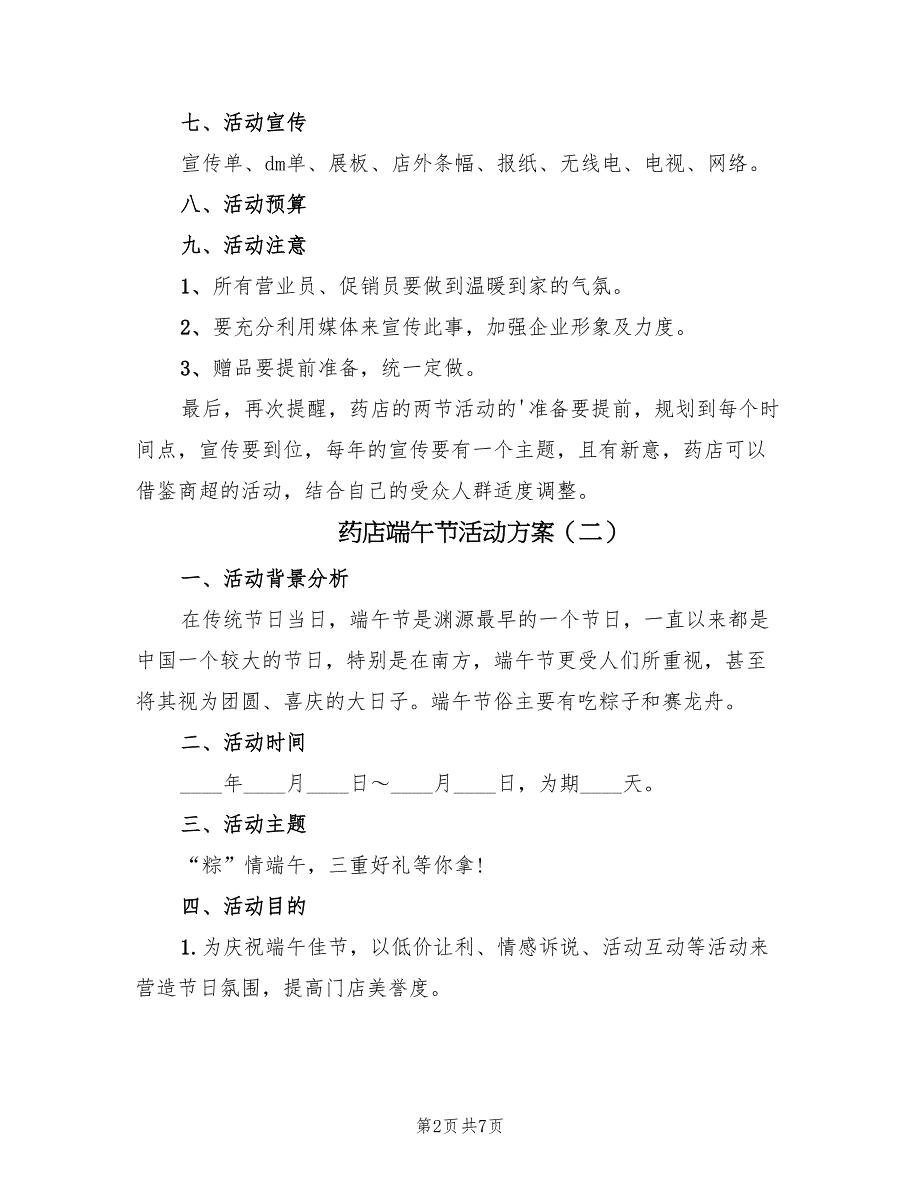 七、活动宣传
宣传单、dm单、展板、店外条幅、报纸、无线电、电视、网络。
八、活动预算
九、活动注意
1、所有营业员、促销员要做到温暖到家的气氛。
2、要充分利用媒体来宣传此事，加强企业形象及力度。
3、赠品要提前准备，统一定做。
最后，再次提醒，药店的两节活动的'准备要提前，规划到每个时
间点，宣传要到位，每年的宣传要有一个主题，且有新意，药店可以
借鉴商超的活动，结合自己的受众人群适度调整。
药店端午节活动方案（二）
一、活动背景分析
在传统节日当日，端午节是渊源最早的一个节日，一直以来都是
中国一个较大的节日，特别是在南方，端午节更受人们所重视，甚至
将其视为团圆、喜庆的大日子。端午节俗主要有吃粽子和赛龙舟。
二、活动时间
____年____月____日～____月____日，为期____天。
三、活动主题
“粽”情端午，三重好礼等你拿!
四、活动目的
1.为庆祝端午佳节，以低价让利、情感诉说、活动互动等活动来
营造节日氛围，提高门店美誉度。
第2页共7页